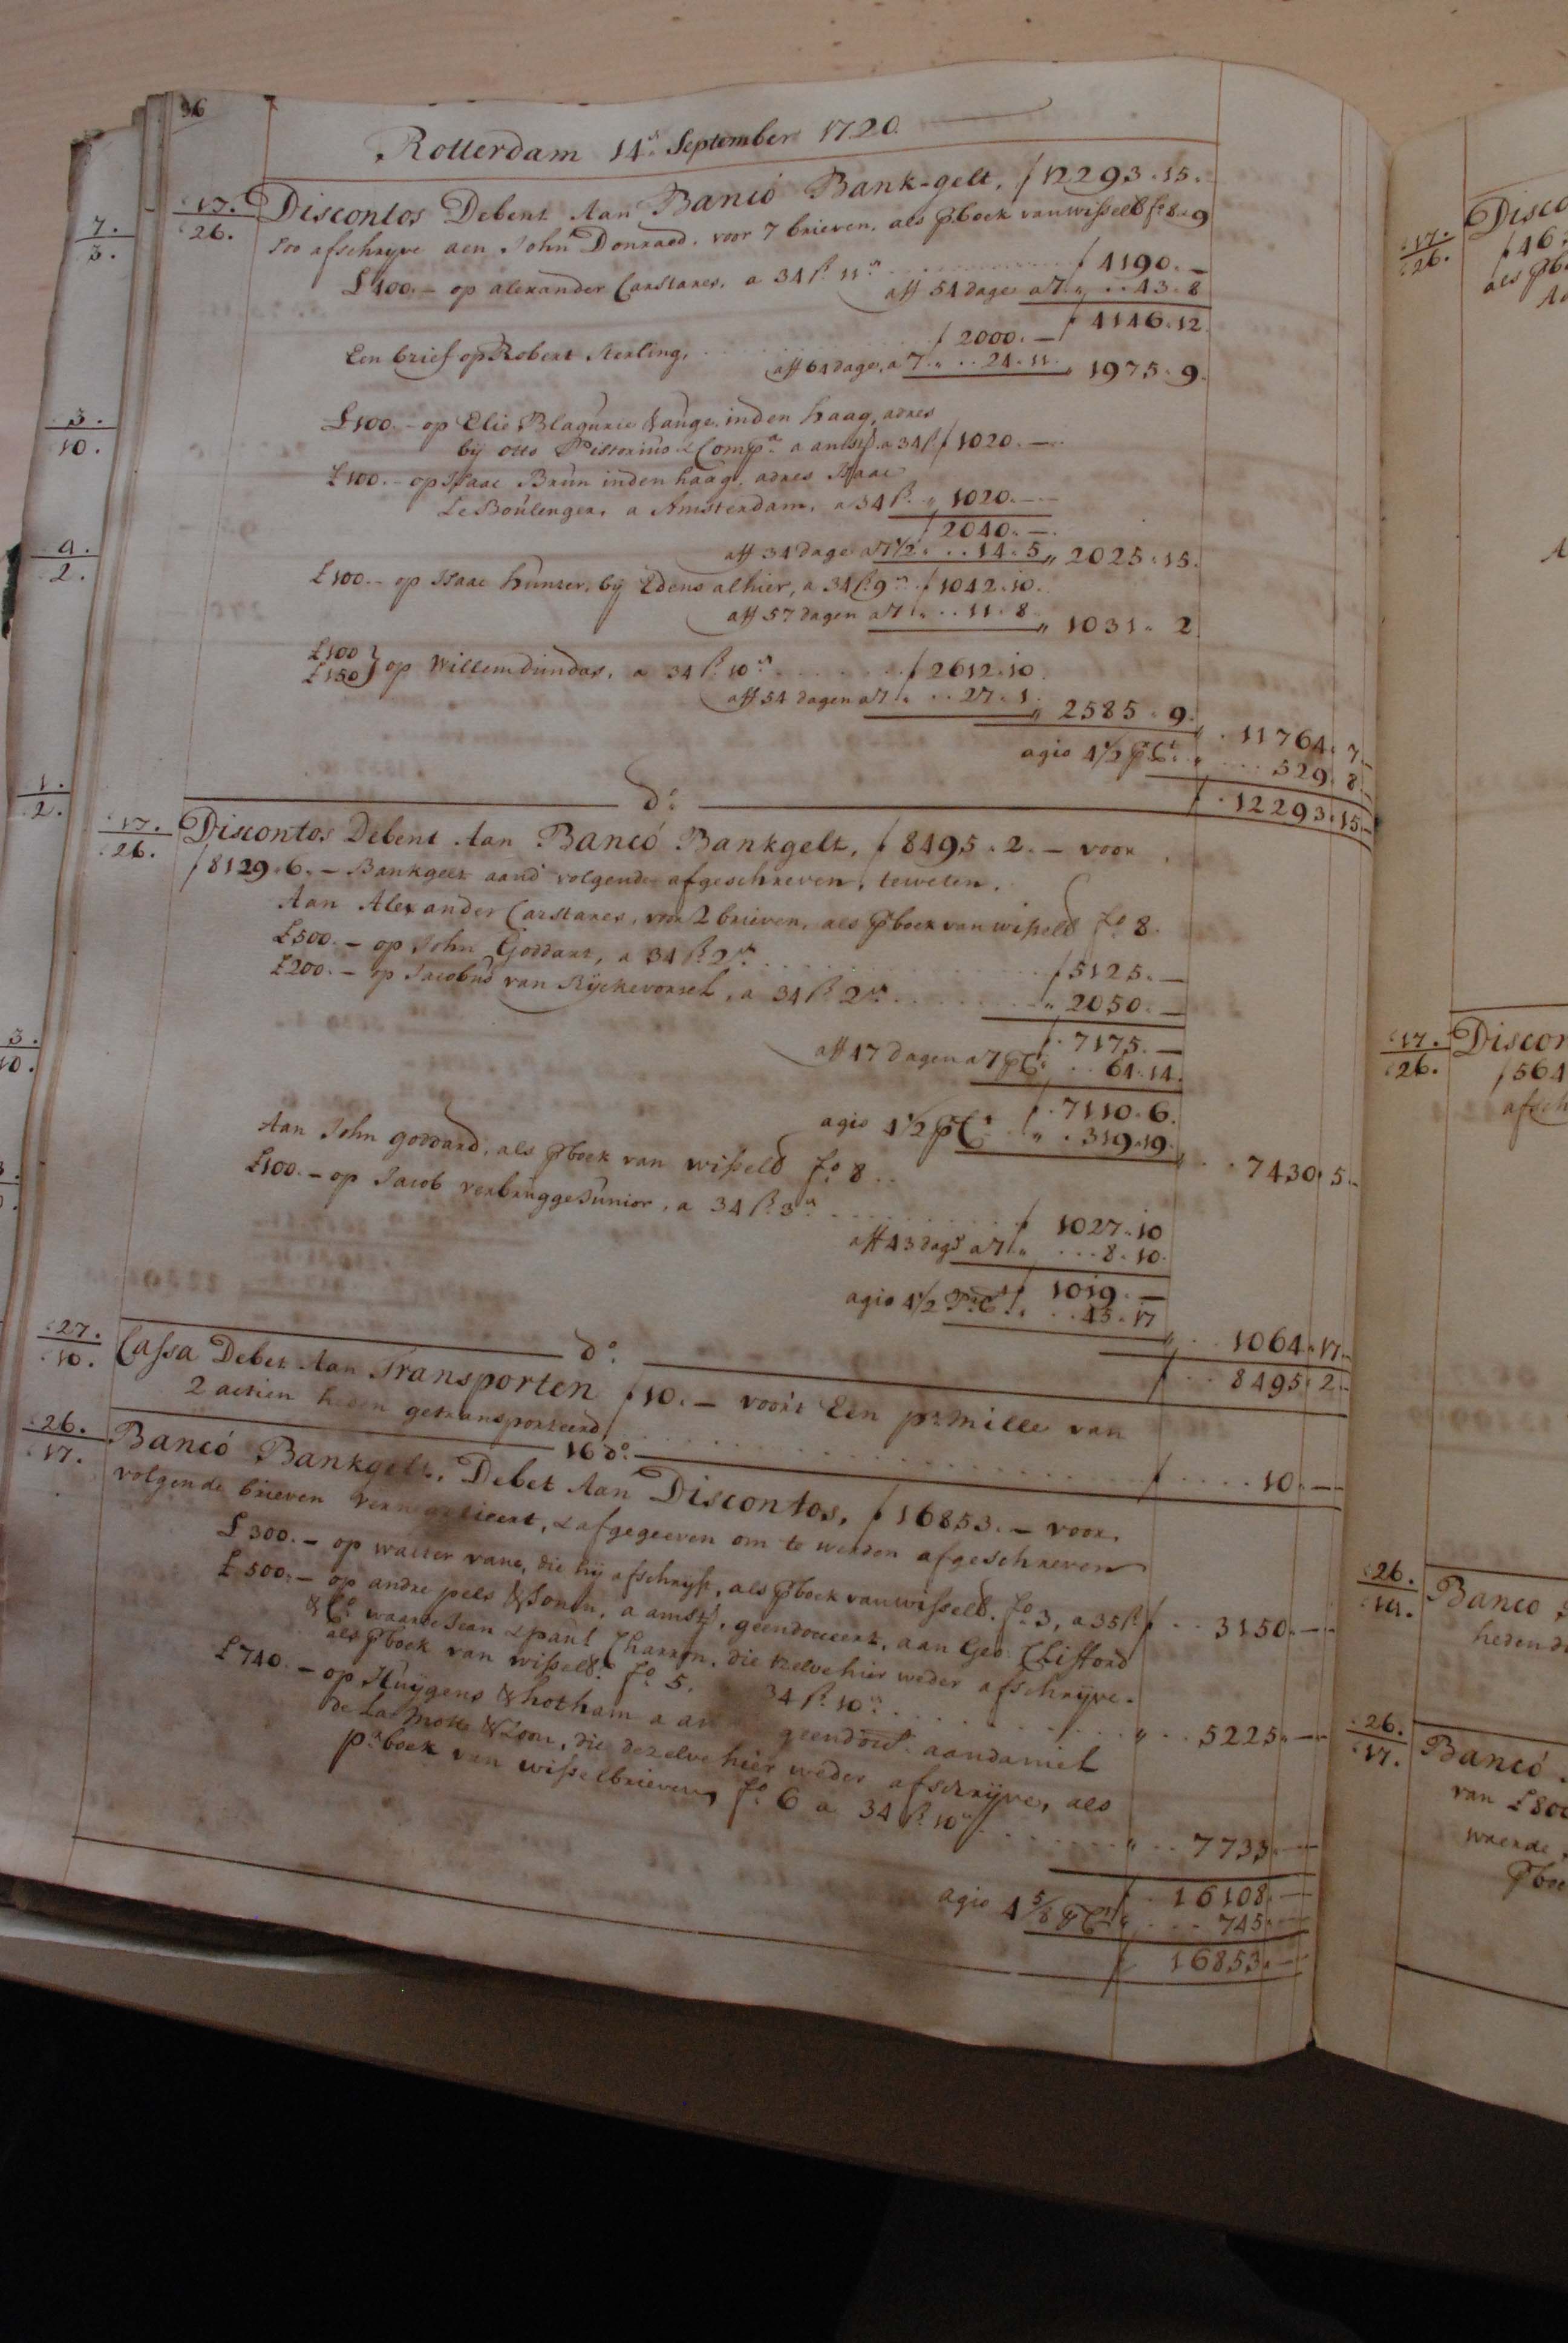 96
Rotterdam 14.en September 1720.
17. / 26. Discontos Debent Aan Banco Bank-gelt, ƒ 12293.15.
soo afschryve aen John Donraed, voor 7 brieven, als Pr boek van wisselb fo 8 a 9
£ 400.– op alexander Carstares, a 34 ß 11 .. ƒ 4190.–
aff 54 dagen a 7 „ .. 43.8
ƒ 4146.12.
Een brief op Robert Sterling, ƒ 2000.–
aff 64 dage, a 7 „ .. 24.11. „ 1975.9.
£ 100.– op Elie Blagurie Lange inden haag, adres
bij Otto Pistorius & Compa a amstd a 34 ß ƒ 1020.–
£ 100.– op Isaac Brun inden haag, adres Isaac
Le Boulenger, a Amsterdam, a 34 ß „ 1020.–
ƒ 2040.–
aff 34 dage a 7 1/2 .. 14.5 „ 2025.15.
£ 100.– op Isaac hunter, bij Edens alhier, a 34 ß 9 ƒ 1042.10.
aff 57 dagen a 7 „ .. 11.8 „ 1031.2
£ 100
£ 150 } op Willem dundas, a 34 ß 10 ƒ 2612.10
aff 54 dagen a 7 „ .. 27.1 „ 2585.9. „ 11764.7
agio 4 1/2 PCt „ 529.8
ƒ 12293.15
do
17. / 26. Discontos Debent Aan Banco Bankgelt, ƒ 8495.2.– voor
ƒ 8129.6.– Bankgelt aand volgende afgeschreven, teweten.
Aan Alexander Carstares, voor 2 brieven, als Pr boek van wisselb fo 8.
£ 500.– op John Goddart, a 34 ß 2 ƒ 5125.–
£ 200.– op Jacobus van Rijckevorsel, a 34 ß 2 „ 2050.–
ƒ 7175.–
aff 47 dagen a 7 PCt .. 64.14.
ƒ 7110.6.
agio 4 1/2 PCt „ 319.19. „ 7430.5
Aan John goddard, als Pr boek van wisselb fo 8
£ 100.– op Jacob verbrugge Junior, a 34 ß 3 ƒ 1027.10
aff 43 dage a 7 „ ... 8.10.
ƒ 1019.–
agio 4 1/2 PrCt „ 45.17 „ 1064.17
ƒ 8495.2
do
27. / 10. Cassa Debet Aan Transporten ƒ 10.– voor't Een pr mille van
2 actien heden getransporteerd, ƒ 10.–
16 do
26. / 17. Banco Bankgelt, Debet Aan Discontos, ƒ 16853.– voor
volgende brieven vernegotieert, & afgegeeven om te werden afgeschreven
£ 300.– op walter vane, die hij afschryft, als Pr boek van wisselb. fo 3, a 35 ß ƒ 3150.–
£ 500.– op andre pels & Sonen, a amstd, geendosseert, aan Geo: Clifford
& Co waarde Jean & paul Charron, die dezelve hier weder afschryve.
als Pr boek van wisselb. fo 5. 34 ß 10 „ 5225.–
£ 740.– op Huijgens & hotham a am geendost. aan daniel
de La Motte & Loon, die dezelve hier weder afschryve, als
pr boek van wisselbrieven, fo 6 a 34 ß 10 „ 7733.–
ƒ 16108.–
agio 4 5/8 PCt „ 745.–
ƒ 16853.–
7. / 3.
3. / 10.
4. / 2.
1. / 2.
3. / 10.
17. / 26. Disco
ƒ 46
als Pb
17. / 26. Discon
ƒ 564
afsch
26. / 14. Banco
heden d
26. / 17. Banco
van £ 800
waerde
Pboe